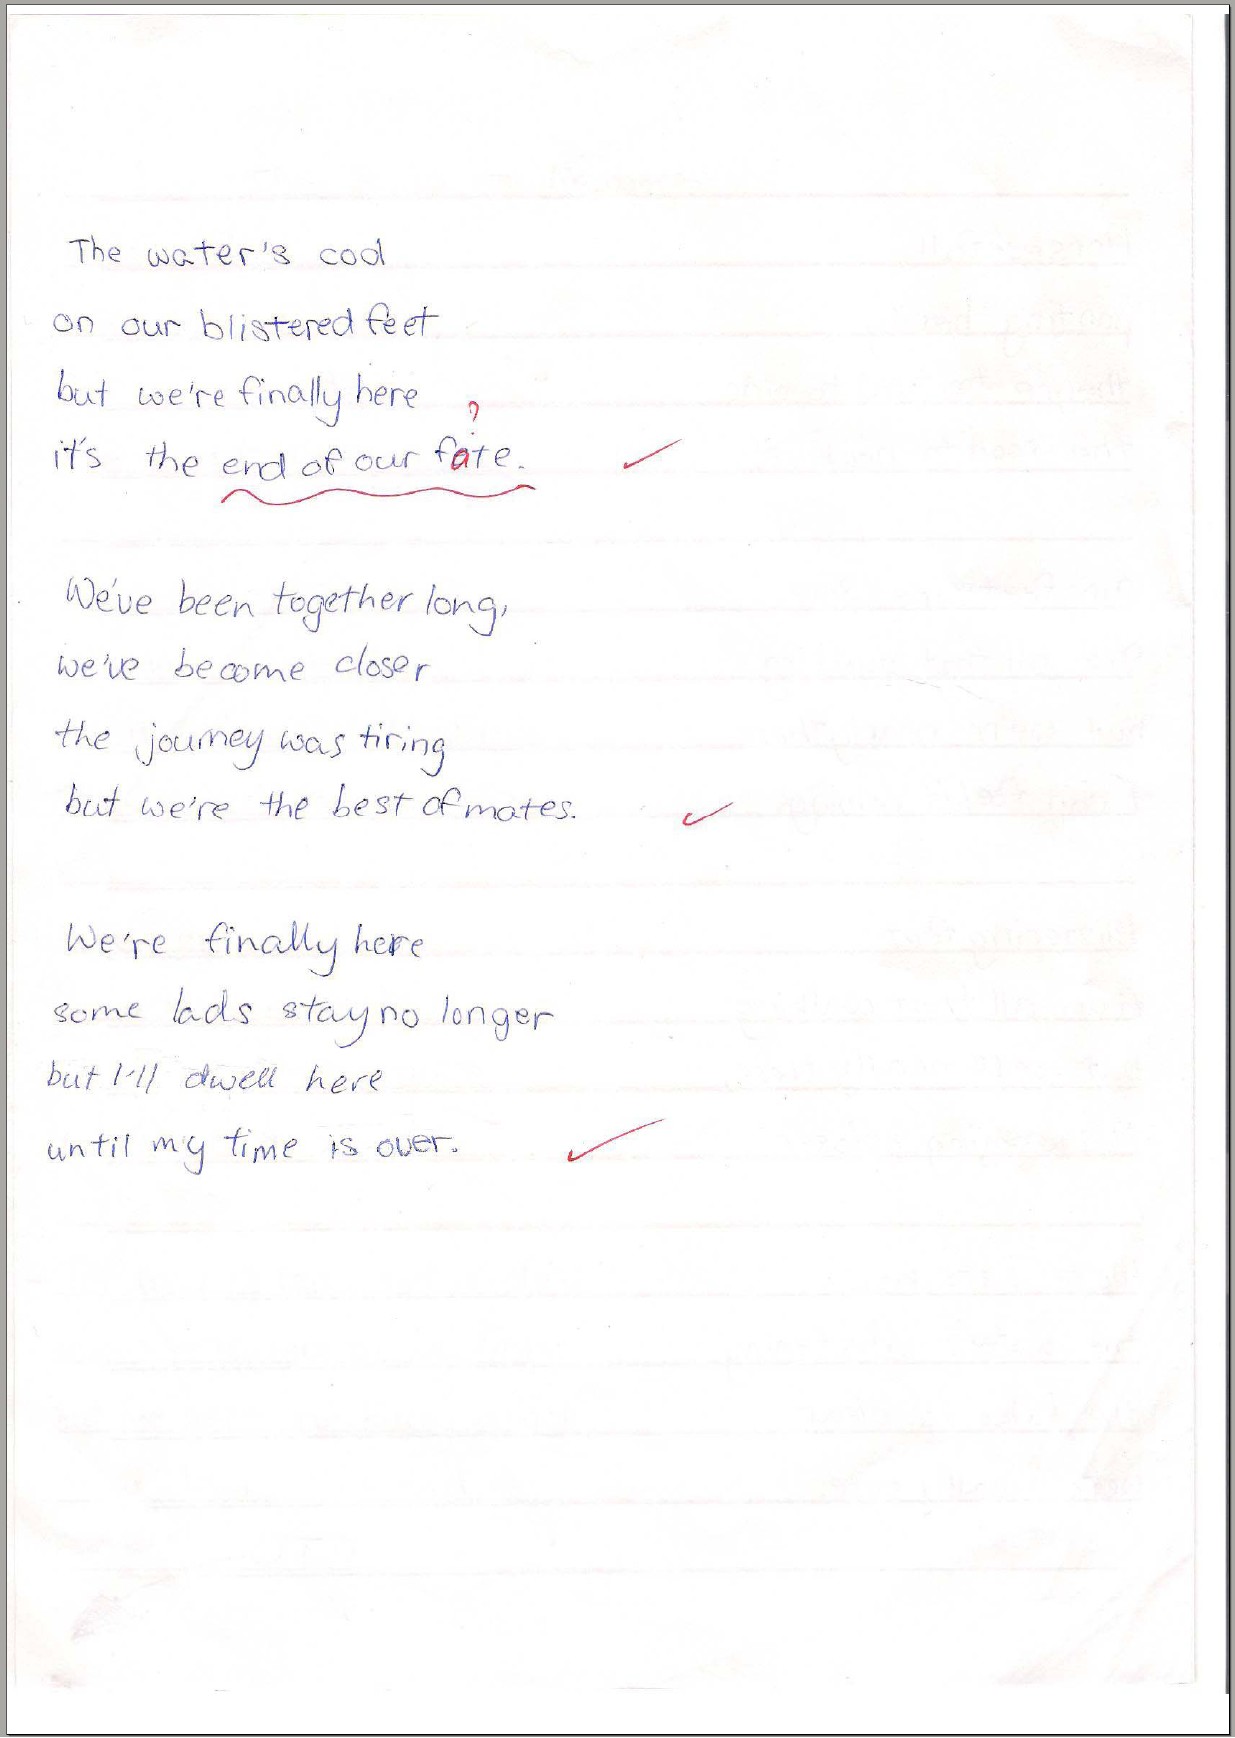 The water's cool
on our blistered feet
but we're finally here
?
it's the end of our fate.
We've been together long,
we've become closer
the journey was tiring
but we're the best of mates.
We're finally here
some lads stay no longer
but I'll dwell here
until my time is over.